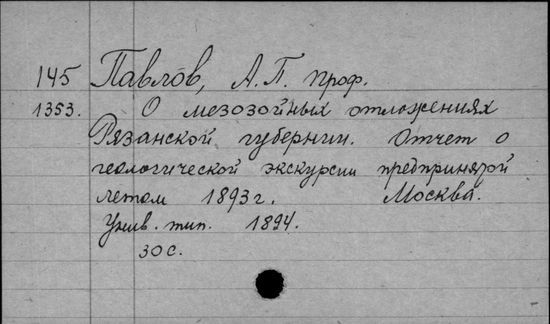 145 Павлов, А.П. проф.
1353. О мезозойных отложениях
Рязанской губернии. Отчет о
геологической экскурсии предпринятой
летом 1893 г. Москва.
Унив. тип. 1894.
30 с.